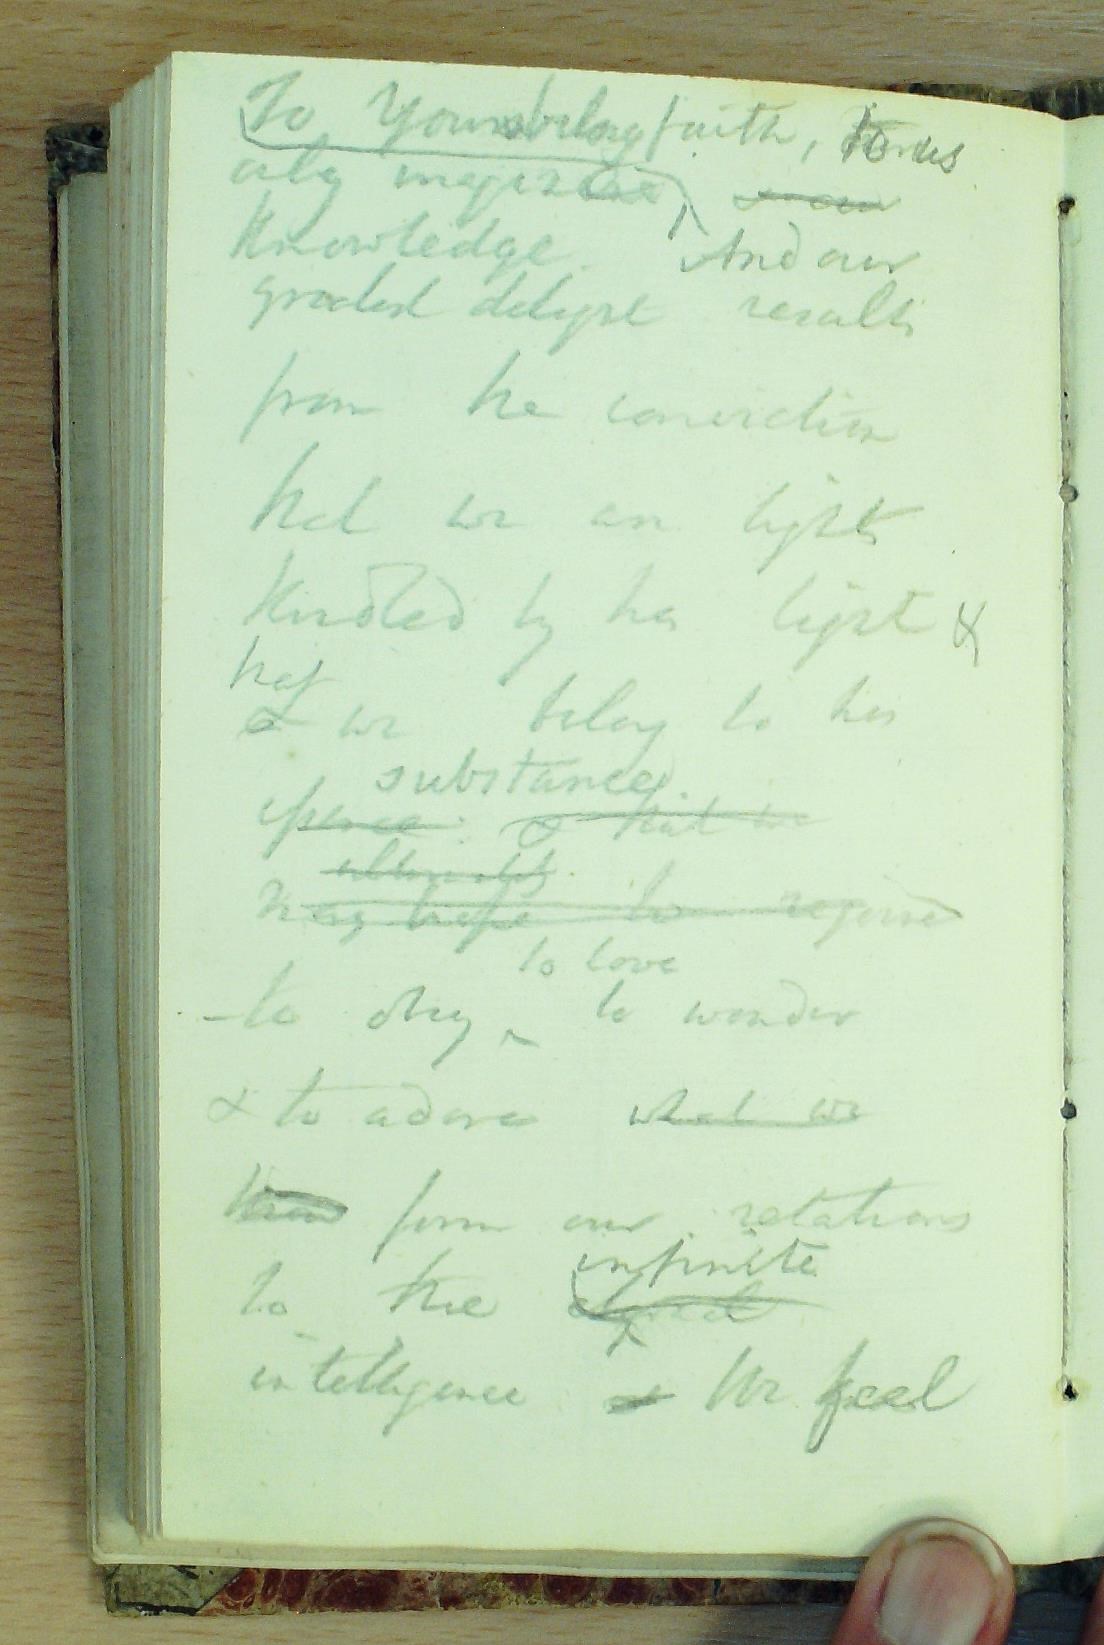 To Youn belong faith, to us
only
Knowledge. And our
greatest delight results
from the conviction
that we are lights
kindled by his light &
that
& we belong to his
substance.
essence & that we
ultimately
may hope to
to love
– to obey, ^ to wonder
& to adore what we
know form our relations
to the
infinite
intelligence & We feel